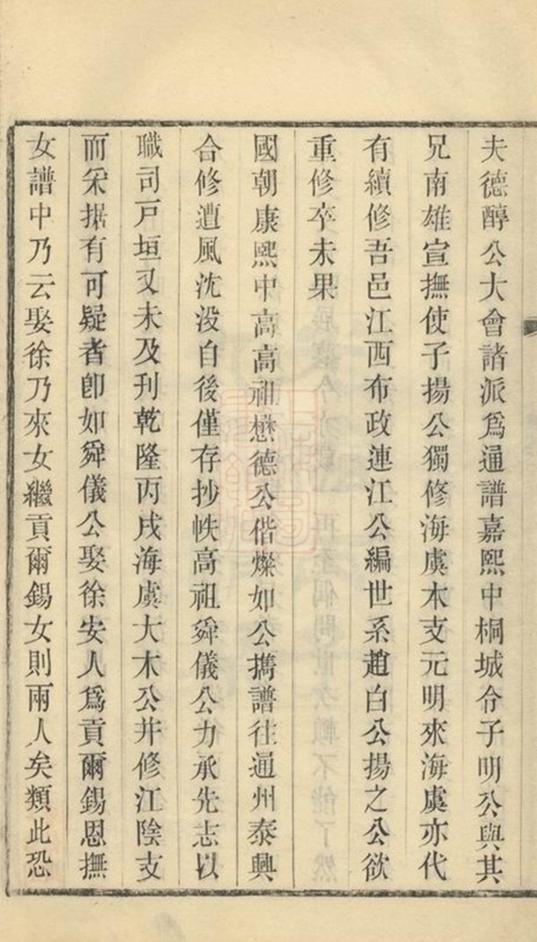 夫德醇公大會諸派爲通譜嘉熙中桐城令子明公與其
兄南雄宣撫使子揚公獨修海虞本支元明來海虞亦代
有續修吾邑江西布政連江公編世系趙白公揚之公欲
重修卒未果
國朝康熙中高高祖懋德公偕燦如公攜譜往通州泰興
合修遭風沈没自後僅存抄帙高祖舜儀公力承先志以
職司戸垣又未及刊乾隆丙戌海虞大木公并修江陰支
而采据有可疑者卽如舜儀公娶徐安人爲貢爾錫恩撫
女譜中乃云娶徐乃來女繼貢爾錫女則兩人矣類此恐